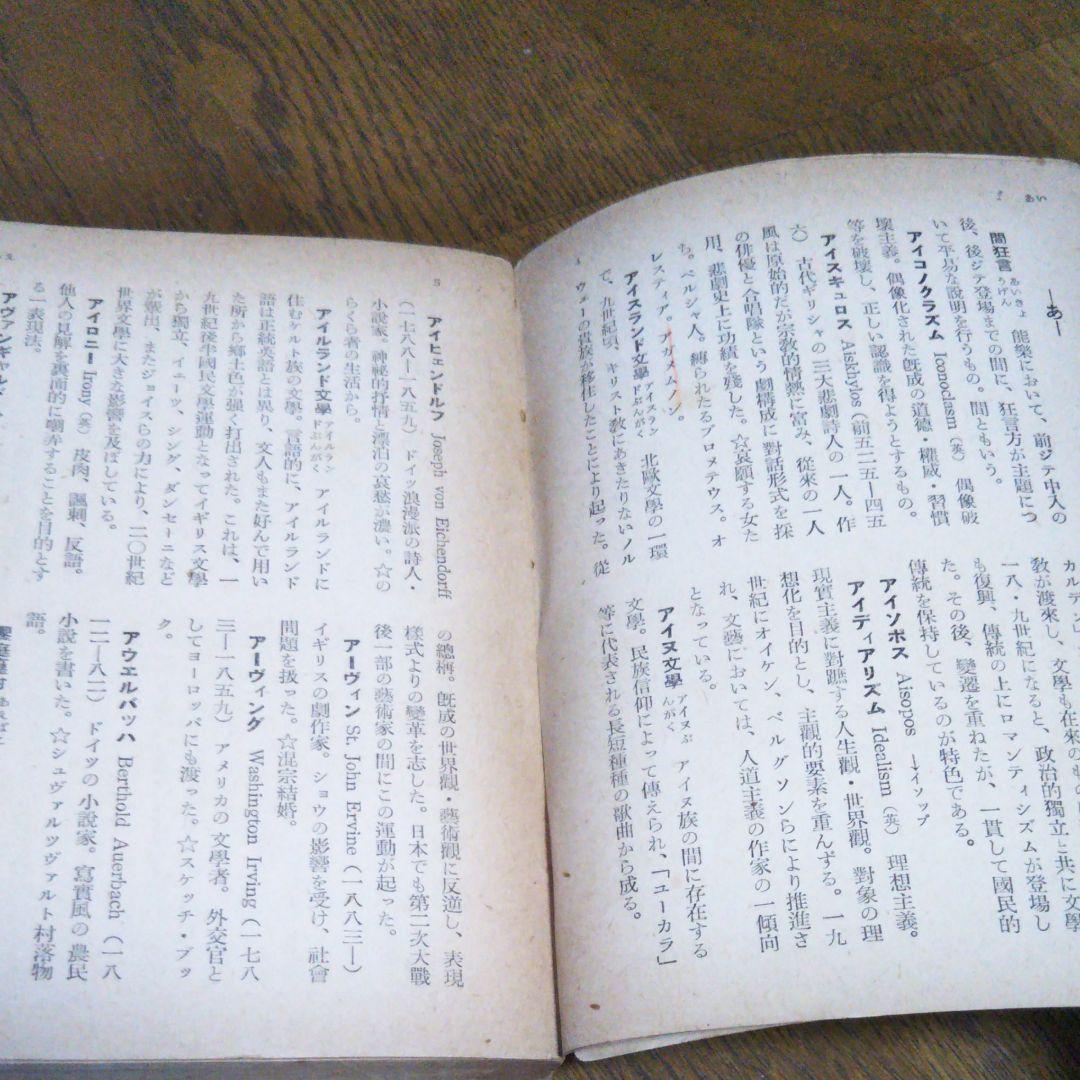 あい
―あ―
間狂言 あいきょうげん 能樂において、前ジテ中入の
後、後ジテ登場までの間に、狂言方が主題につ
いて平易な説明を行うもの。間ともいう。
アイコノクラズム Iconoclasm (英) 偶像破
壞主義。偶像化された旣成の道德・權威・習慣
等を破壞し、正しい認識を得ようとするもの。
アイスキュロス Aiskhylos (前五二五―四五
六) 古代ギリシャの三大悲劇詩人の一人。作
風は原始的だが宗敎的情熱に富み、從來の一人
の俳優と合唱隊という劇構成に對話形式を採
用、悲劇史上に功績を残した。☆哀願する女た
ち。ペルシャ人。縛られたるプロメテウス。オ
レスティア。アガメムノン。
アイスランド文學 アイスランドぶんがく 北歐文學の一環
で、九世紀頃、キリスト敎にあきたりないノル
ウェーの貴族が移住したことにより起った。從
敎が渡來し、文學も在來のもの
一八・九世紀になると、政治的獨立と共に文學
も復興、傳統の上にロマンティシズムが登場し
た。その後、變遷を重ねたが、一貫して國民的
傳統を保持しているのが特色である。
アイソポス Aisopos →イソップ
アイディアリズム Idealism (英) 理想主義。
現實主義に對蹠する人生觀・世界觀。對象の理
想化を目的とし、主觀的要素を重んずる。一九
世紀にオイケン、ベルグソンらにより推進さ
れ、文藝においては、人道主義の作家の一傾向
となっている。
アイヌ文學 アイヌぶんがく アイヌ族の間に存在する
文學。民族信仰によって傳えられ、「ユーカラ」
等に代表される長短種種の歌曲から成る。
5
アイヒェンドルフ Joseph von Eichendorff
(一七八八―一八五九) ドイツ浪漫派の詩人・
小說家。神祕的抒情と漂泊の哀愁が濃い。☆の
らくら者の生活から。
アイルランド文學 アイルランドぶんがく アイルランドに
住むケルト族の文學。言語的に、アイルランド
語は正統英語とは異り、文人もまた好んで用い
た所から鄕土色が强く打出された。これは、一
九世紀後半國民文學運動となってイギリス文學
から獨立、イエーツ、シング、ダンセーニなど
が輩出、またジョイスらの力により、二〇世紀
世界文學に大きな影響を及ぼしている。
アイロニー Irony (英) 皮肉、諷刺、反語。
他人の見解を裏面的に嘲弄することを目的とす
る一表現法。
アヴァンギャルド
の總稱。旣成の世界觀・藝術觀に反逆し、表現
樣式よりの變革を志した。日本でも第二次大戰
後一部の藝術家の間にこの運動が起った。
アーヴィン St. John Ervine (一八八三―)
イギリスの劇作家。ショウの影響を受け、社會
問題を扱った。☆混宗結婚。
アーヴィング Washington Irving (一七八
三―一八五九) アメリカの文學者。外交官と
してヨーロッパにも渡った。☆スケッチ・ブッ
ク。
アウエルバッハ Berthold Auerbach (一八
一二―八二) ドイツの小說家。寫實風の農民
小說を書いた。☆シュヴァルツヴァルト村落物
語。